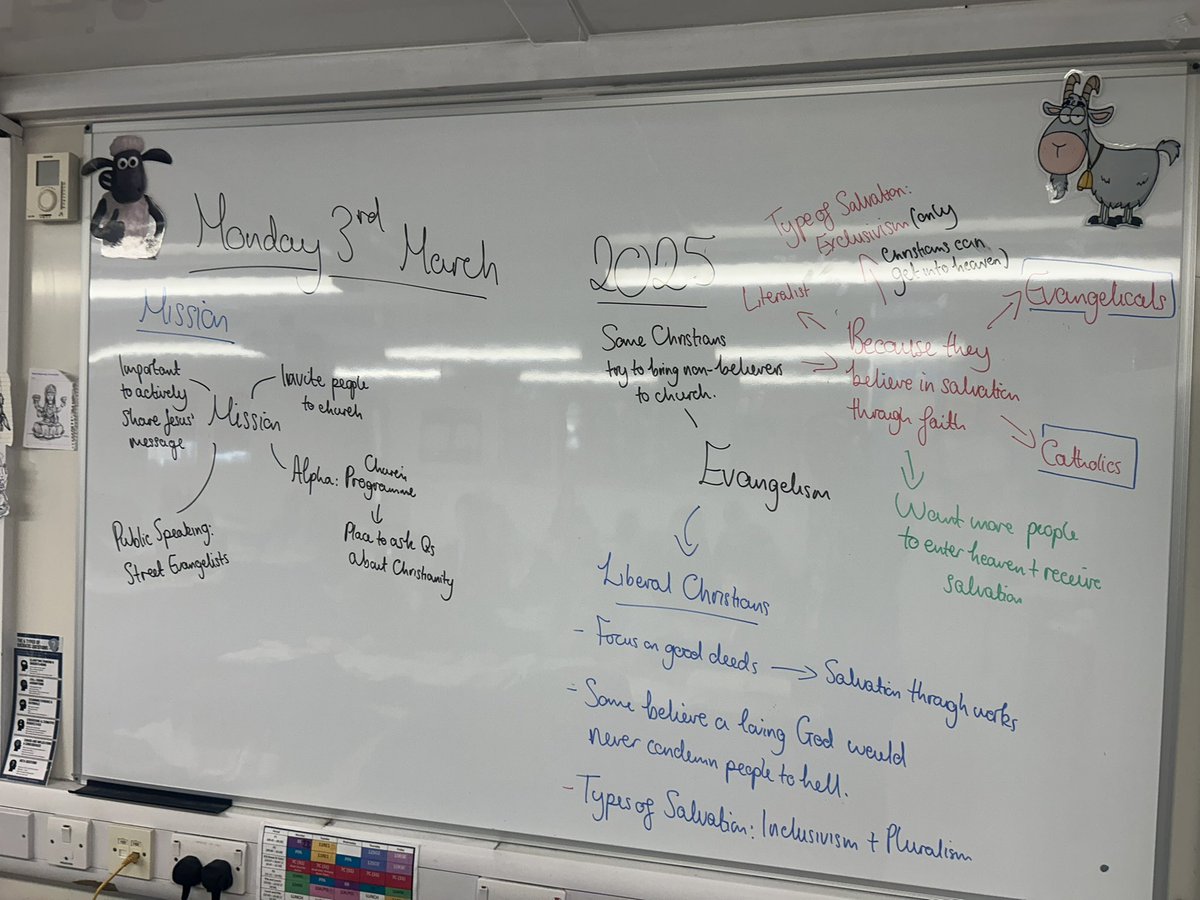 Monday 3rd March 2025
Mission
Important
to actively
share Jesus'
message
Mission
Invite people
to church
Alpha: Programme
Public Speaking:
Street Evangelists
Place to ask Qs
about Christianity
Some Christians
try to bring non-believers
to church.
Evangelism
Type of Salvation:
Exclusivism (only
Christians can
get into heaven)
Literalist
Because they
believe in salvation
through faith
Evangelicals
Catholics
Want more people
to enter heaven + receive
salvation
Liberal Christians
- Focus on good deeds → Salvation through works
- Some believe a loving God would
never condemn people to hell.
- Types of Salvation: Inclusivism + Pluralism